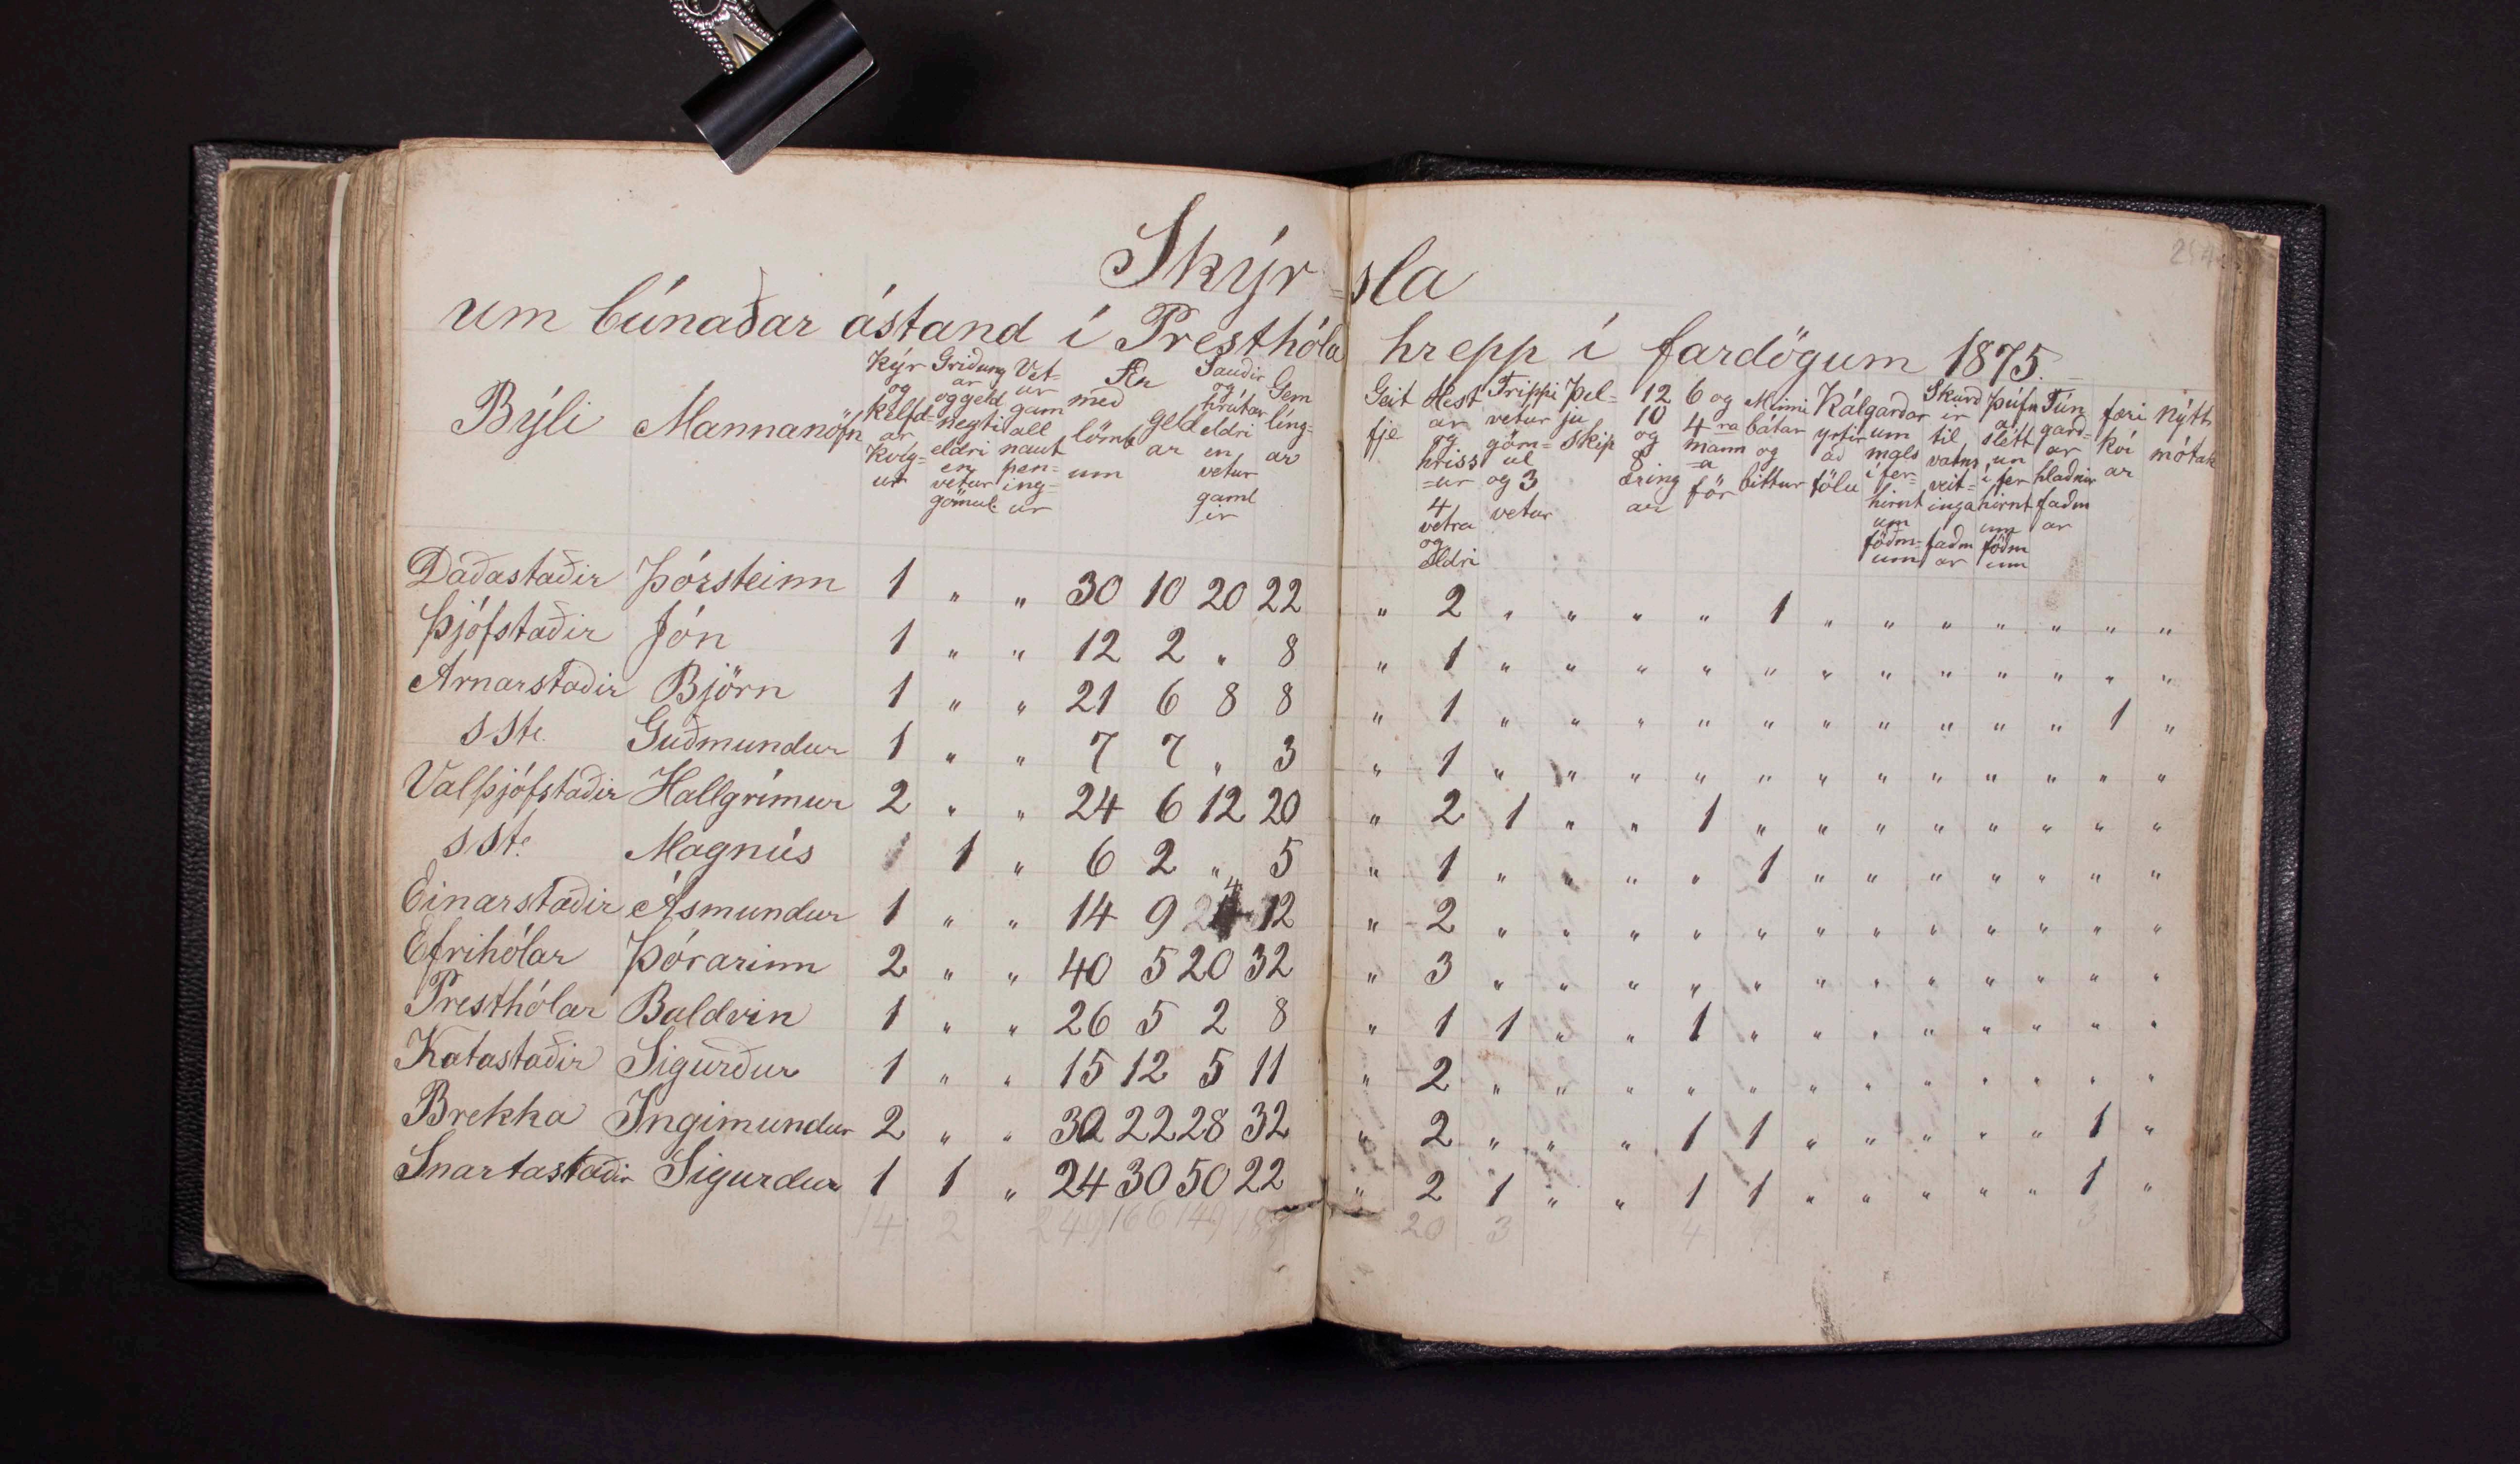 Skýr=sla
um búnaðar ástand í Presthóla hrepp í fardögum 1875.
Býli Mannanöfn
Kýr og kelfdar kvígur
Griðungar og geld neyti eldri en vetur gömul
Vetur gamall nautpeningur
Ær með lömbum
geldar
Sauðir og hrútar eldri en veturgamlir
Gemlíngar
Geitfje
Hestar og hrissur 4 vetra og eldri
Trippi veturgömul og 3 vetur
Þelju skip
12 10 og 8 æringar
6 og 4ra manna för
Minni bátar og bittur
Kálgarðar yrtir að tölu
um mals í ferhirntum föðmum
Skurðir til vatnsveitinga faðmar
Þúfna sléttun í ferhirntum föðmum
Tún garðar hlaðnir faðmar
færikvíar
nýtt mótak
Daðastaðir Þórsteinn 1 " " 30 10 20 22 " 2 " " " " 1 " " " " " " "
Þjófstaðir Jón 1 " " 12 2 " 8 " 1 " " " " " " " " " " " "
Arnarstaðir Björn 1 " " 21 6 8 8 " 1 " " " " " " " " " " 1 "
sste. Guðmundur 1 " " 7 7 " 3 " 1 " " " " " " " " " " " "
Valþjófstaðir Hallgrímur 2 " " 24 6 12 20 " 2 1 " " 1 " " " " " " " "
sste. Magnús 1 " 6 2 " 5 " 1 " " " " 1 " " " " " " "
Einarstaðir Ásmundur 1 " " 14 9 4 12 " 2 " " " " " " " " " " " "
Efrihólar Þórarinn 2 " " 40 5 20 32 " 3 " " " " " " " " " " " "
Presthólar Baldvin 1 " " 26 5 2 8 " 1 1 " " 1 " " " " " " " "
Katastaðir Sigurður 1 " " 15 12 5 11 " 2 " " " " " " " " " " " "
Brekka Ingimundur 2 " " 30 22 28 32 " 2 " " " 1 1 " " " " " 1 "
Snartastaðir Sigurdur 1 1 " 24 30 50 22 " 2 1 " " 1 1 " " " " " 1 "
14 2 249 166 149 20 3 4 4 3